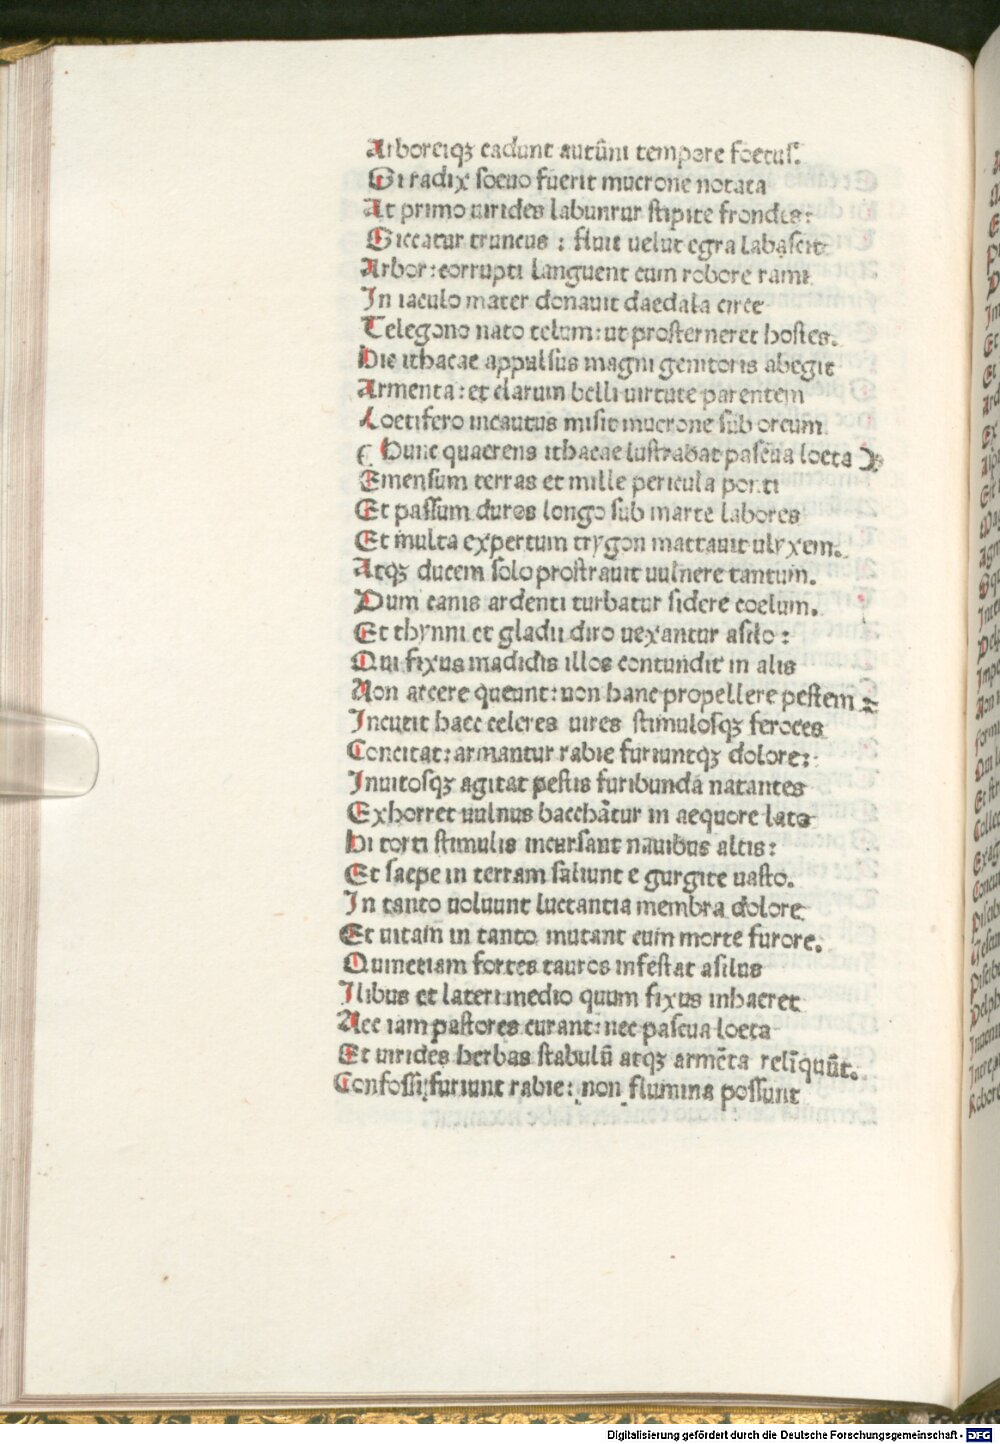 Arboreiqꝫ cadunt autūni tempore foetus.
Si radix soeuo fuerit mucrone notata
At primo uirides labuntur stipite frondes:
Siccatur truncus: fluit uelut egra labascit
Arbor: corrupti languent cum robore rami
In iaculo mater donauit daedala circe
Telegono nato telum: ut prosterneret hostes.
Hic ithacae appulsus magni genitoris abegit
Armenta: et clarum belli uirtute parentem
Loetifero incautus misit mucrone sub orcum
( Hunc quaerens ithacae lustrabat pascūa loeta )
Emensum terras et mille pericula ponti
Et passum duros longo sub marte labores
Et multa expertum trygon mactauit ulyxem.
Atqꝫ ducem solo prostrauit uulnere tantum.
Dum canis ardenti turbatur sidere coelum.
Et thynni et gladii diro uexantur asilo:
Qui fixus madidis illos contundit in alis
Non arcere queunt: non hanc propellere pestem
Incutit haec celeres uires stimulosqꝫ feroces
Concitat: armantur rabie furiuntqꝫ dolore:
Inuitosqꝫ agitat pestis furibunda natantes
Exhorret uulnus bacchātur in aequore lato
Hi torti stimulis incursant nauibus altis:
Et saepe in terram saliunt e gurgite uasto.
In tanto uoluunt luctantia membra dolore
Et uitam in tanto mutant cum morte furore.
Quinetiam fortes tauros infestat asilus
Ilibus et lateri medio quum fixus inhaeret
Nec iam pastores curant: nec pascua loeta
Et uirides herbas stabulū atqꝫ armēta relīquūt.
Confossi furiunt rabie: non flumina possunt
Digitalisierung gefördert durch die Deutsche Forschungsgemeinschaft - DFG